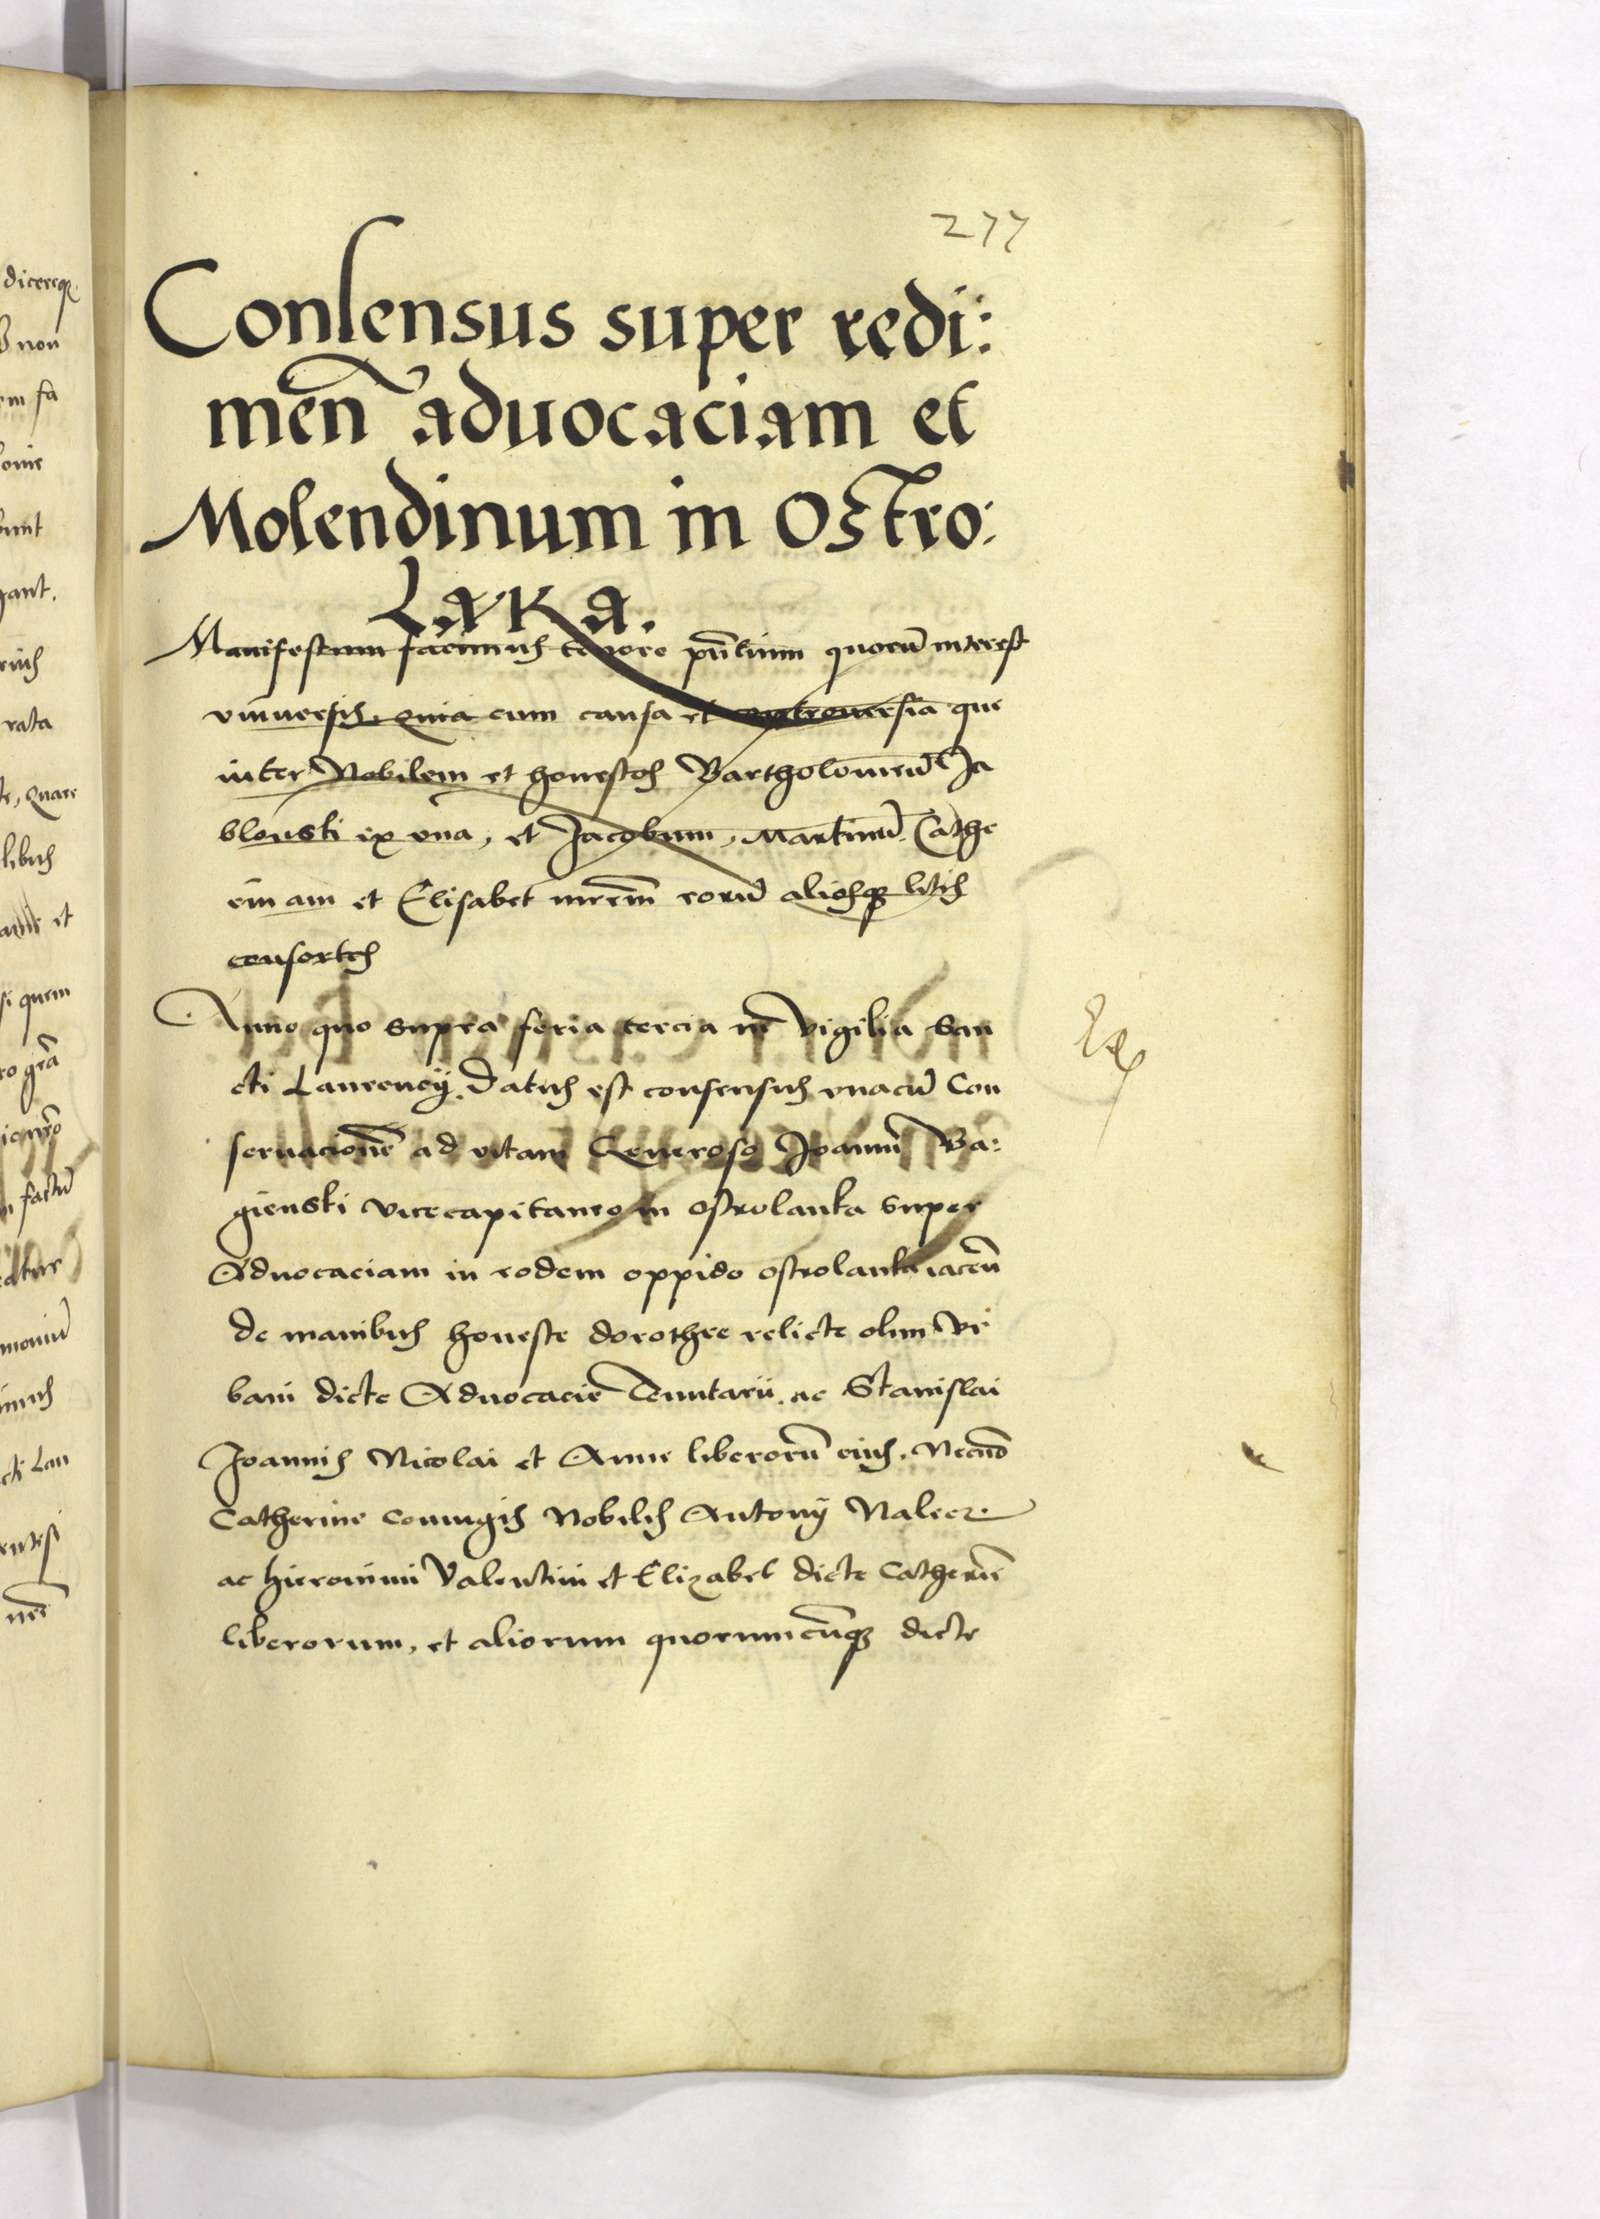 277
Consensus super redi:
men̄ aduocaciam et
Molendinum in Ostro:
Ląka.
Manifestum facimus tenore pn̄tium quorū interest
vniuersis. quia cum causa et controuersia que
inter Nobilem et honestos Bartholomeū Ja
blonski ex vna, et Jacobum, Martinū. Cathe
rinam et Elisabet mr̄em eorū aliosqꝫ litis
consortes
Anno quo supra feria tercia in vigilia San
cti Laurencÿ. Datus est consensus vnacū Con
seruacione ad vitam Generoso Joanni Ba:
gienski vicecapitaneo in ostrolanka super
Aduocaciam in eodem oppido ostrolanka iacen̄
de manibus honeste dorothee relicte olim Vr
bani dicte Aduocacie Tenutarii. ac Stanislai
Joannis Nicolai et Anne liberorū eius. Necnō
Catherine coniugis Nobilis Antonÿ Nalecz
ac hieronimi Valentini et Elizabet dicte Catherine
liberorum, et aliorum quorumcūqꝫ dicte